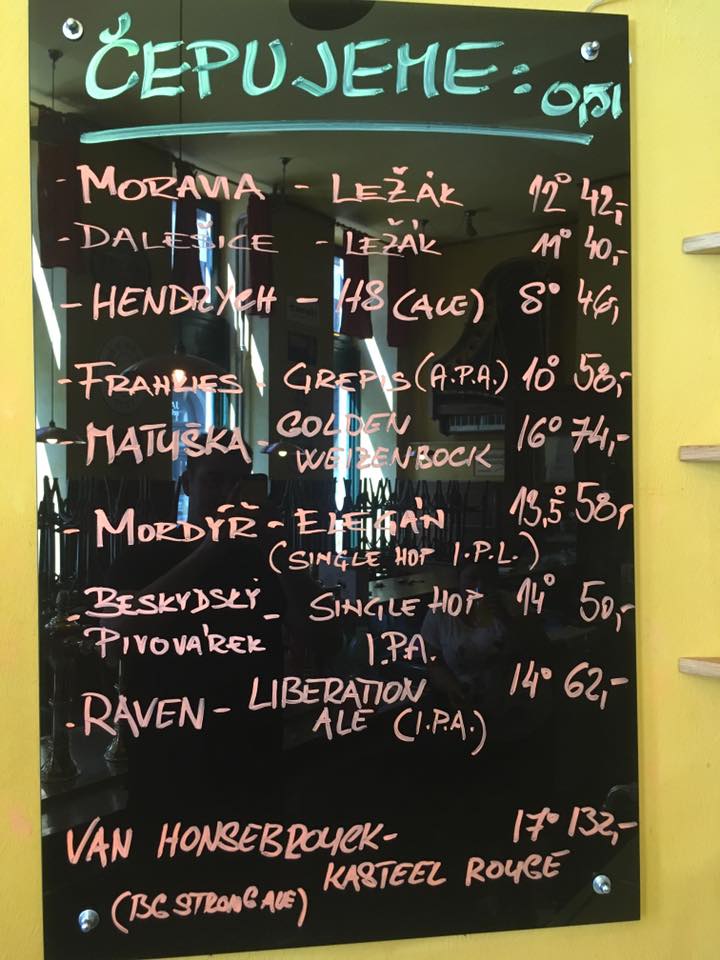 ČEPUJEME: 0,5l
- MORAVIA - LEŽÁK 12° 42,-
- DALEŠICE - LEŽÁK 11° 40,-
- HENDRYCH - H8 (ALE) 8° 46,-
- FRANKIES - GREPIS (A.P.A.) 10° 58,-
- MATUŠKA - GOLDEN WEIZENBOCK 16° 74,-
- MORDÝŘ - ELEGÁN 13,5° 58,-
(SINGLE HOP I.P.L.)
- BESKYDSKÝ PIVOVÁREK - SINGLE HOP I.P.A. 14° 50,-
- RAVEN - LIBERATION ALE (I.P.A.) 14° 62,-
VAN HONSEBROUCK - 17° 132,-
KASTEEL ROUGE
(BG STRONG ALE)